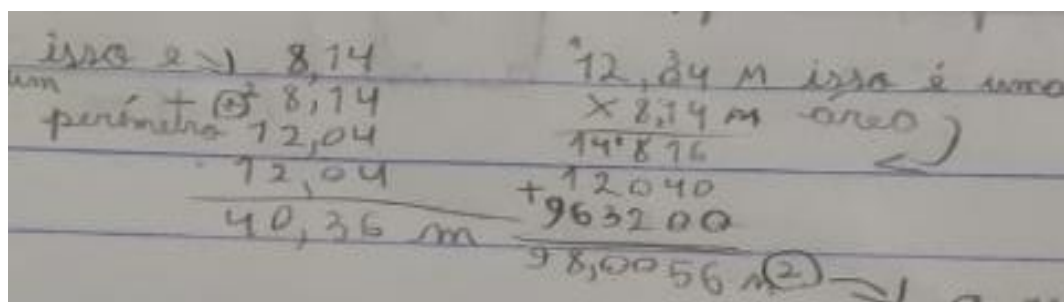 isso e 8,14
um
+ 8,14
perímetro 12,04
12,04
40,36 m
12,04 m isso é uma
x 8,14 m área
14816
+12040
963200
98,0056 m²